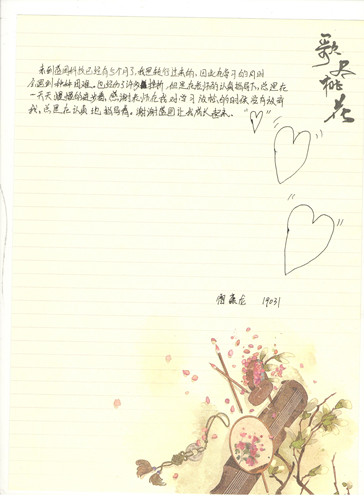 歌尽桃花
来到蓝图科技已经有5个月了,我是转行过来的,因此在学习的同时
会遇到种种困难,也经历了许多挫折,但是在老师的认真指导下,总是在
一天天慢慢的进步着,感谢老师在我对学习放松的时候没有放弃
我,总是在认真地指导着,谢谢蓝图让我成长起来。
19031